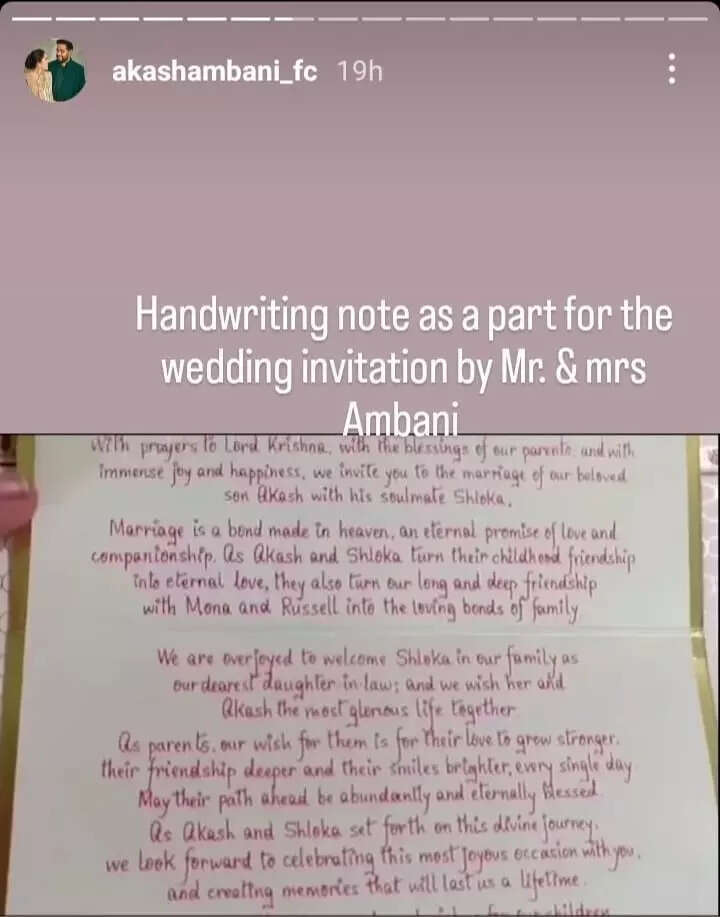 akashambani_fc 19h
Handwriting note as a part for the
wedding invitation by Mr. & mrs
Ambani
With prayers to Lord Krishna, with the blessings of our parents, and with
immense joy and happiness, we invite you to the marriage of our beloved
son Akash with his soulmate Shloka.
Marriage is a bond made in heaven, an eternal promise of love and
companionship. As Akash and Shloka turn their childhood friendship
into eternal love, they also turn our long and deep friendship
with Mona and Russell into the loving bonds of family
We are overjoyed to welcome Shloka in our family as
our dearest daughter-in-law; and we wish her and
Akash the most glorious life together
As parents, our wish for them is for their love to grow stronger,
their friendship deeper and their smiles brighter, every single day
May their path ahead be abundantly and eternally blessed
As Akash and Shloka set forth on this divine journey,
we look forward to celebrating this most joyous occasion with you,
and creating memories that will last us a lifetime
children